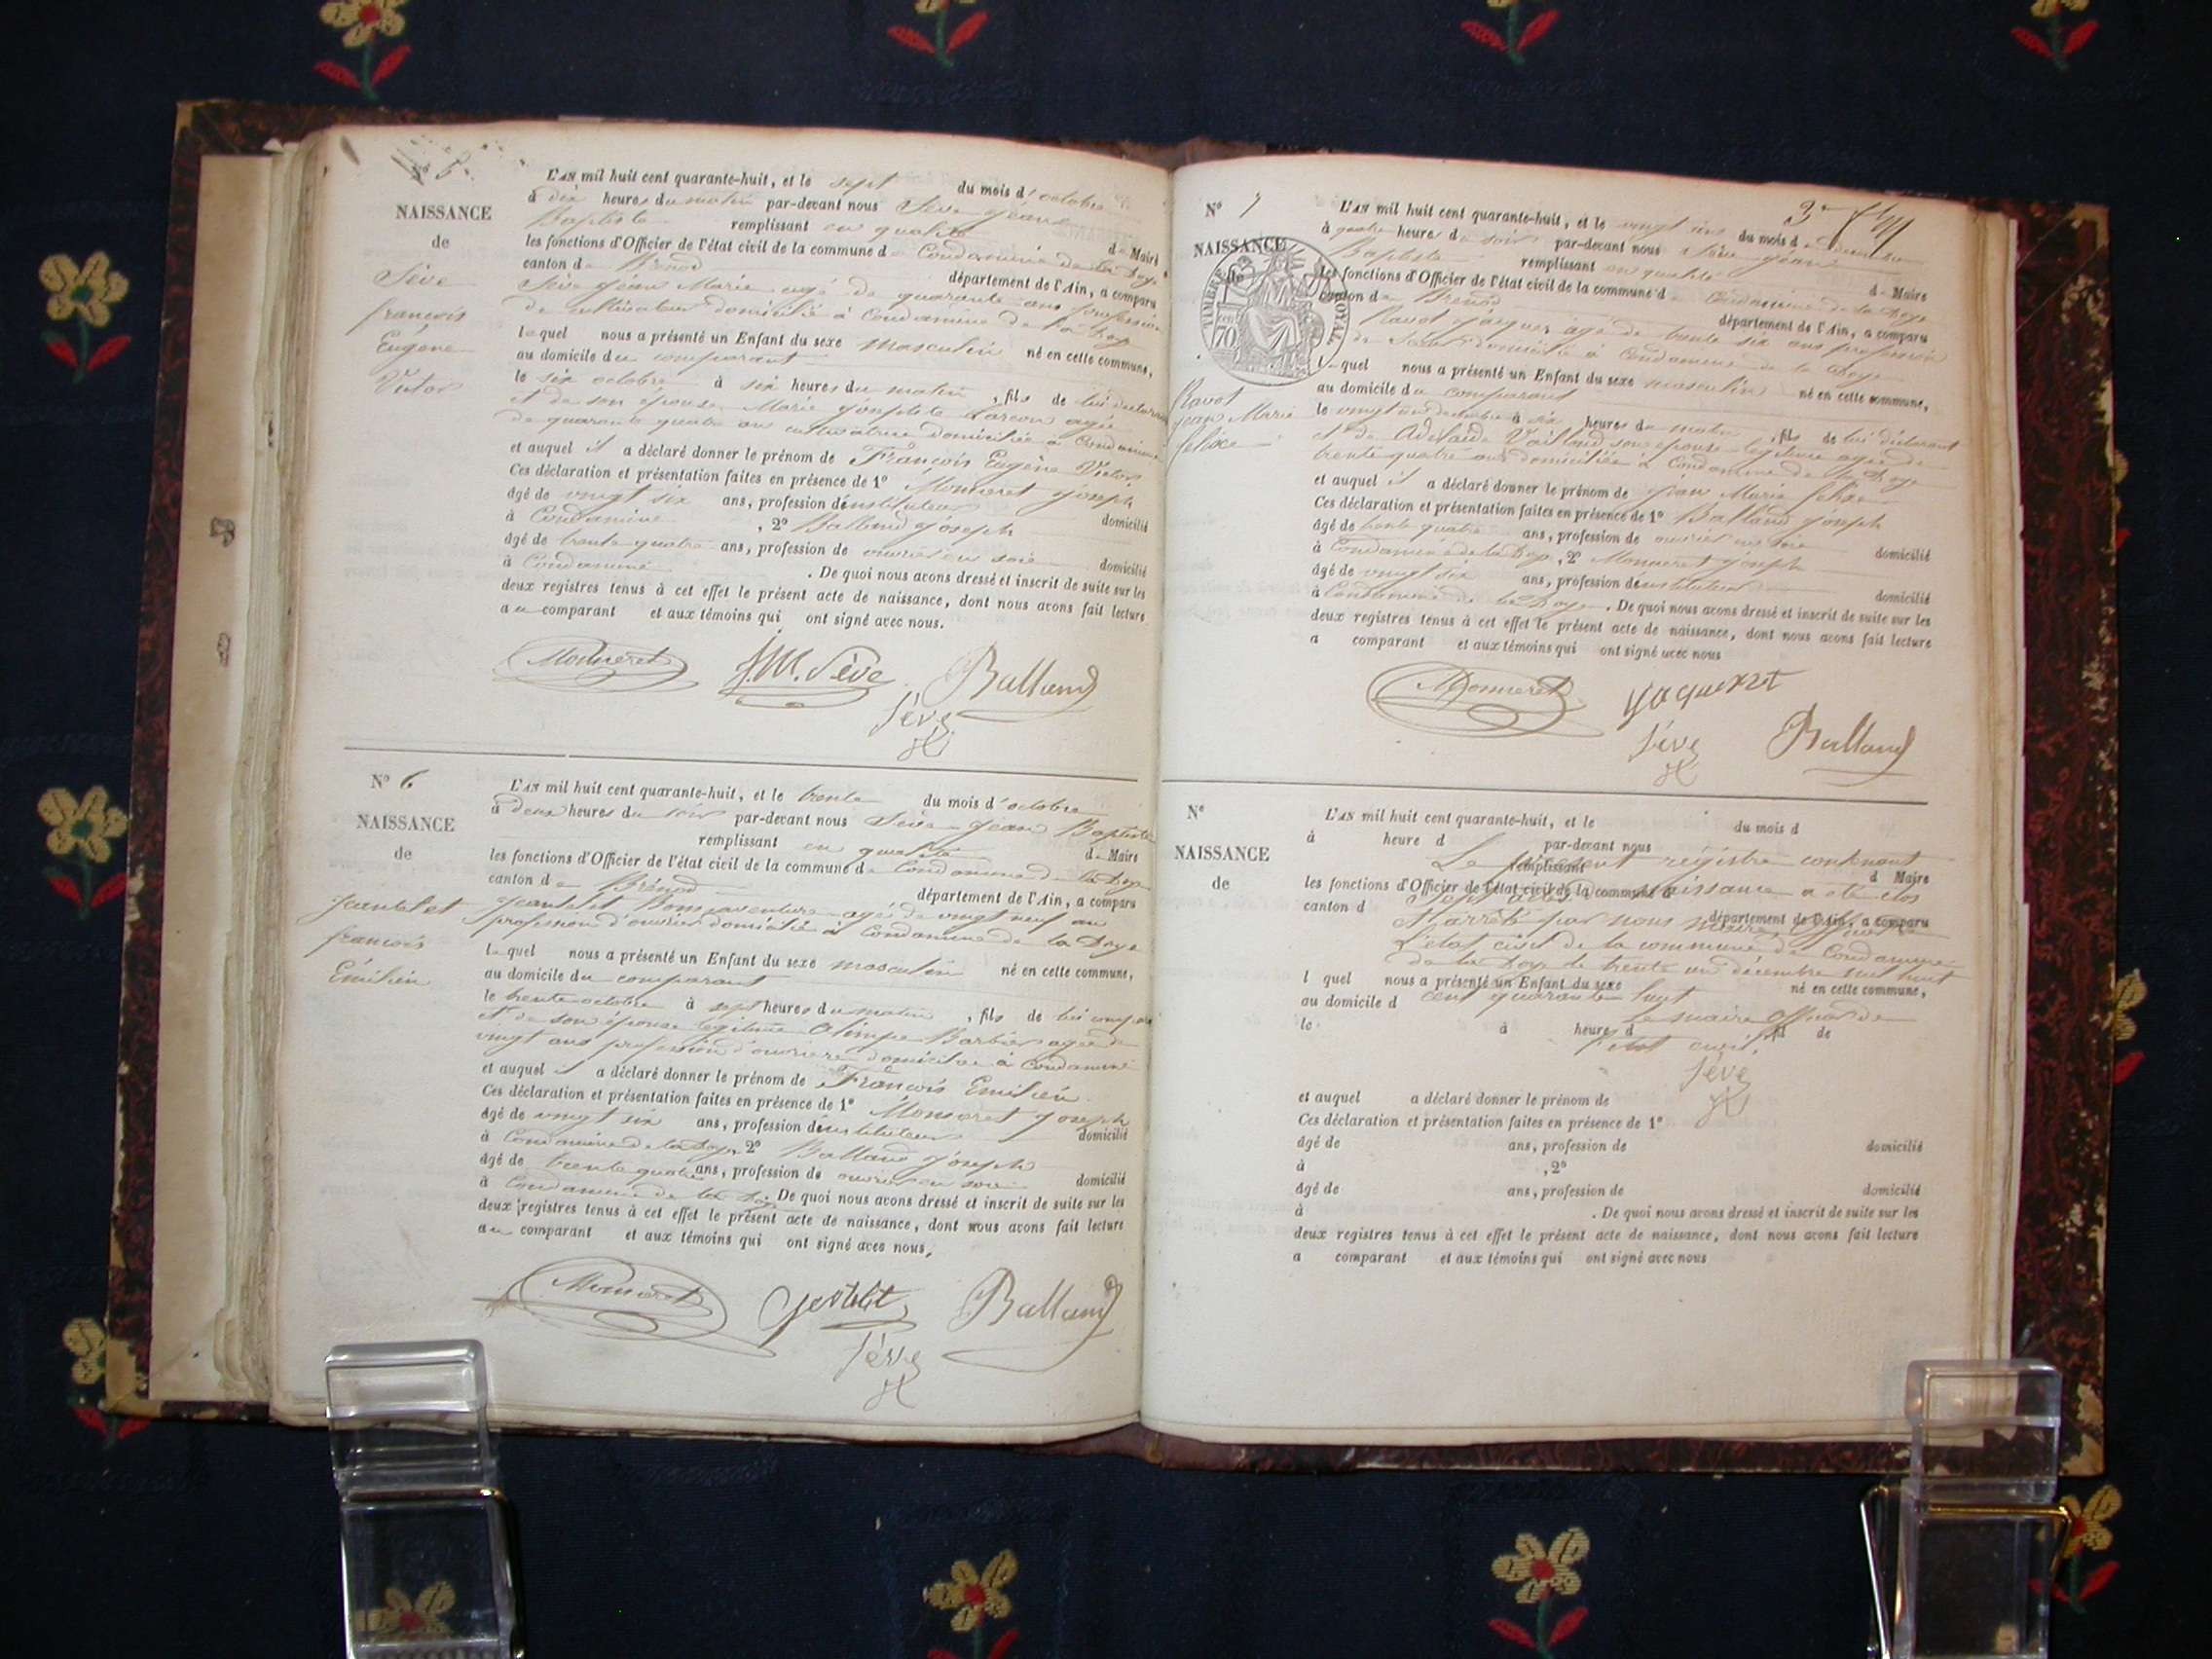 N° 5.
NAISSANCE
de
Sève
françois
Eugène
Victor
L'AN mil huit cent quarante-huit, et le sept du mois d'octobre
à dix heures du matin par-devant nous Sève Jean
Baptiste remplissant en qualité d Maire
les fonctions d'Officier de l'état civil de la commune d Condamine de la Doye
canton de Brénod département de l'Ain, a comparu
Sève Jean Marie agé de quarante ans profession
de cultivateur domicilié à Condamine de la Doye
lequel nous a présenté un Enfant du sexe masculin né en cette commune,
au domicile du comparant
le six octobre à six heures du matin, fils de lui déclarant
et de son épouse Marie Josephte agée
de quarante quatre ans cultivatrice domiciliée à Condamine
et auquel il a déclaré donner le prénom de François Eugène Victor
Ces déclaration et présentation faites en présence de 1° Monneret Joseph
âgé de vingt six ans, profession d'instituteur domicilié
à Condamine, 2° Balland Joseph
âgé de trente quatre ans, profession de ouvrier en soie domicilié
à Condamine. De quoi nous avons dressé et inscrit de suite sur les
deux registres tenus à cet effet le présent acte de naissance, dont nous avons fait lecture
au comparant et aux témoins qui ont signé avec nous.
Monneret J.M. Sève Balland
Sève
N° 6
NAISSANCE
de
Jantelet
françois
Émilien
L'AN mil huit cent quarante-huit, et le trente du mois d'octobre
à deux heures du soir par-devant nous Sève Jean Baptiste
remplissant en qualité de Maire
les fonctions d'Officier de l'état civil de la commune de Condamine de la Doye
canton de Brénod département de l'Ain, a comparu
Jantelet Bonnaventure agé de vingt neuf ans
profession d'ouvrier domicilié à Condamine de la Doye
lequel nous a présenté un Enfant du sexe masculin né en cette commune,
au domicile du comparant
le trente octobre à sept heures du matin, fils de lui
et de son épouse légitime Olimpe Barbier agée de
vingt ans profession d'ouvrière domiciliée à Condamine
et auquel il a déclaré donner le prénom de François Emilién
Ces déclaration et présentation faites en présence de 1° Monneret Joseph
âgé de vingt six ans, profession d'instituteur domicilié
à Condamine de la Doye, 2° Balland Joseph
âgé de trente quatre ans, profession de ouvrier en soie domicilié
à Condamine de la Doye. De quoi nous avons dressé et inscrit de suite sur les
deux registres tenus à cet effet le présent acte de naissance, dont nous avons fait lecture
au comparant et aux témoins qui ont signé avec nous.
Monneret Balland
Sève
3e
N° 7
NAISSANCE
de
TIMBRE ROYAL
70
Ravot
Jean Marie
felixe
L'AN mil huit cent quarante-huit, et le vingt un du mois de décembre
à quatre heures du soir par-devant nous Sève Jean
Baptiste remplissant en qualité d Maire
les fonctions d'Officier de l'état civil de la commune d Condamine de la Doye
canton de Brénod département de l'Ain, a comparu
Ravot Jacques agé de trente six ans profession
de domicilié à Condamine de la Doye
l quel nous a présenté un Enfant du sexe masculin né en cette commune,
au domicile du comparant
le vingt un décembre à six heures du matin, fils de lui déclarant
et de Adélaïde Vailland son épouse légitime agée de
trente quatre ans domiciliée à Condamine de la Doye
et auquel il a déclaré donner le prénom de Jean Marie felixe
Ces déclaration et présentation faites en présence de 1° Balland Joseph
âgé de trente quatre ans, profession de ouvrier en soie domicilié
à Condamine de la Doye, 2° Monneret Joseph
âgé de vingt six ans, profession d'instituteur domicilié
à Condamine de la Doye. De quoi nous avons dressé et inscrit de suite sur les
deux registres tenus à cet effet le présent acte de naissance, dont nous avons fait lecture
a comparant et aux témoins qui ont signé avec nous
Monneret Balland
Sève
N°
NAISSANCE
de
L'AN mil huit cent quarante-huit, et le du mois d
à heure d par-devant nous
Le présent régistre contenant
remplissant d Maire
les fonctions d'Officier de l'état civil de la commune d
sept actes de naissance a été clos
canton d département de l'Ain, a comparu
et arrêté par nous maire officier de
l'état civil de la commune de Condamine
de la Doye le trente un décembre mil huit
l quel nous a présenté un Enfant du sexe né en cette commune,
au domicile d cent quarante huit
le maire officier de
le à heures d , fil de
l'état civil.
Sève
et auquel a déclaré donner le prénom de
Ces déclaration et présentation faites en présence de 1°
âgé de ans, profession de domicilié
à , 2°
âgé de ans, profession de domicilié
à . De quoi nous avons dressé et inscrit de suite sur les
deux registres tenus à cet effet le présent acte de naissance, dont nous avons fait lecture
a comparant et aux témoins qui ont signé avec nous